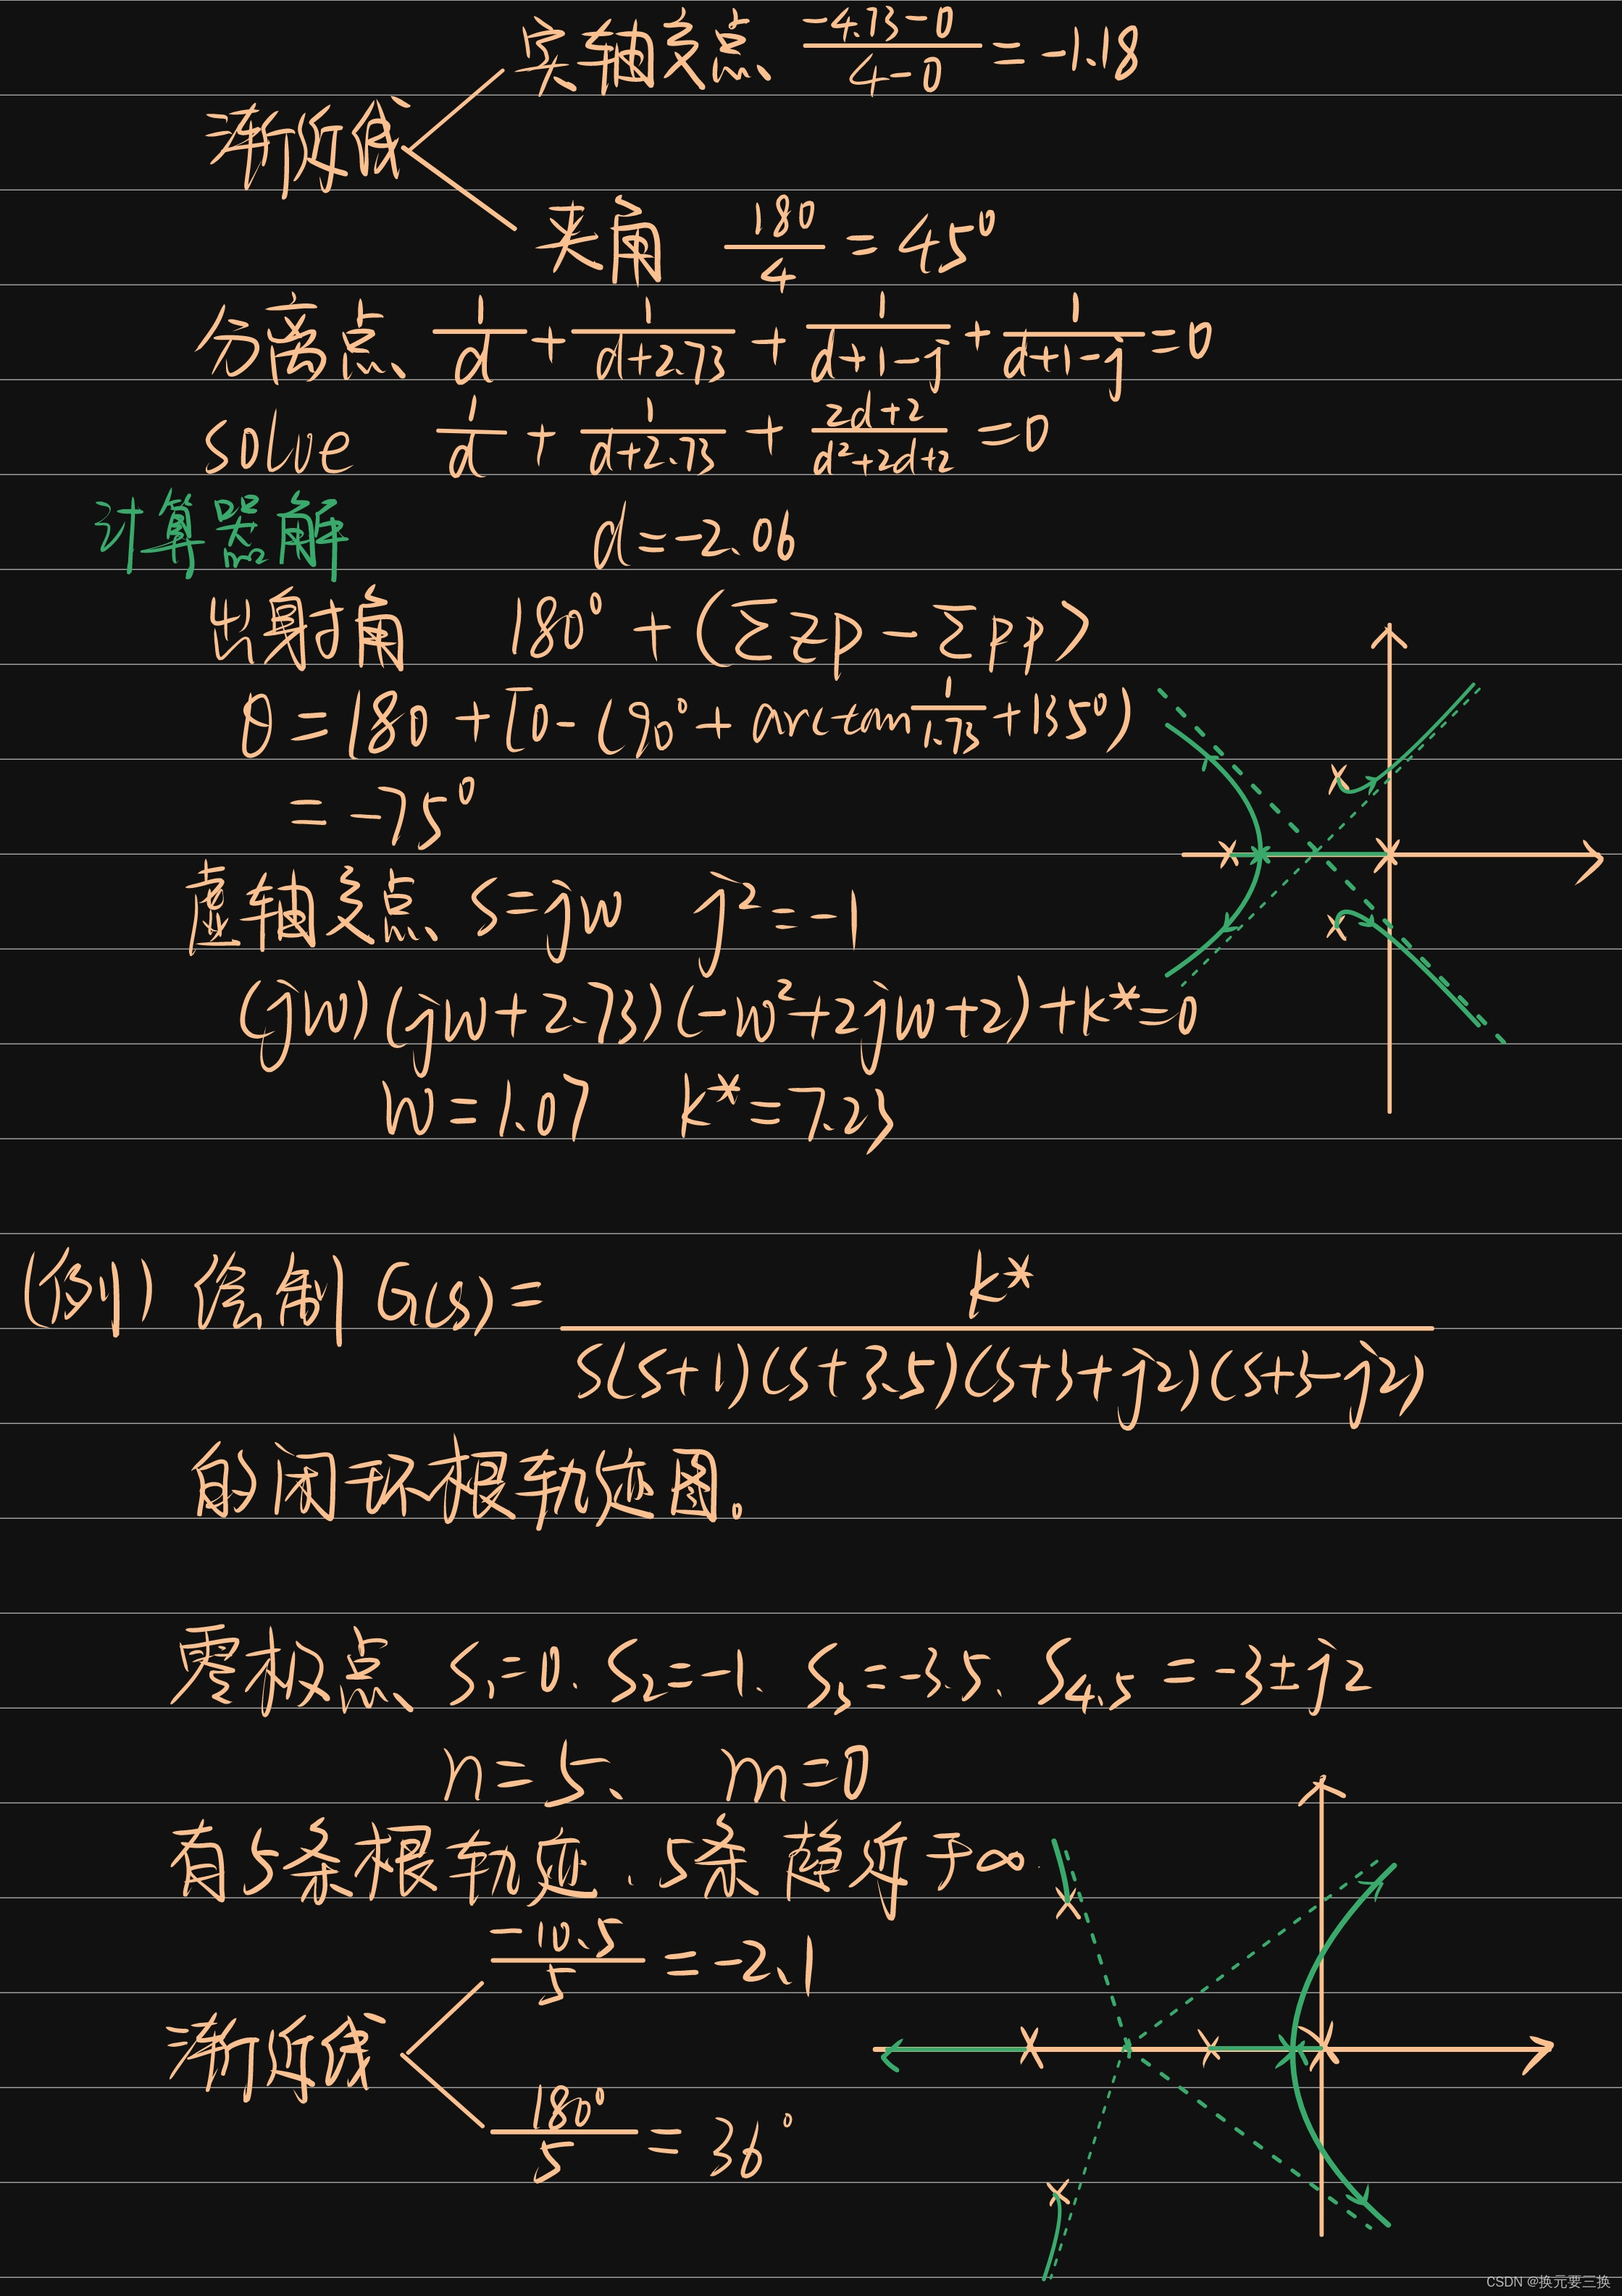 实轴交点 \frac{-4.73-0}{4-0} = -1.18
渐近线
夹角 \frac{180}{4} = 45°
分离点 \frac{1}{d} + \frac{1}{d+2.73} + \frac{1}{d+1-j} + \frac{1}{d+1-j} = 0
solve \frac{1}{d} + \frac{1}{d+2.73} + \frac{2d+2}{d²+2d+2} = 0
计算器解 d = -2.06
出射角 180° + (Σzp - Σpp)
θ = 180 + [0 - (90° + arctan\frac{1}{1.73} + 135°)
= -75°
虚轴交点 s = jw j² = -1
(jw)(jw+2.73)(-w²+2jw+2)+k*=0
w = 1.07 k* = 7.23
(例) 绘制 G(s) = \frac{k*}{s(s+1)(s+3.5)(s+3+j2)(s+3-j2)}
的闭环根轨迹图。
零极点 s₁=0. s₂=-1. s₃=-3.5. s₄.₅ = -3±j2
n=5、 m=0
有5条根轨迹、5条趋近于∞
\frac{-10.5}{5} = -2.1
渐近线
\frac{180°}{5} = 36°
CSDN @换元要三换